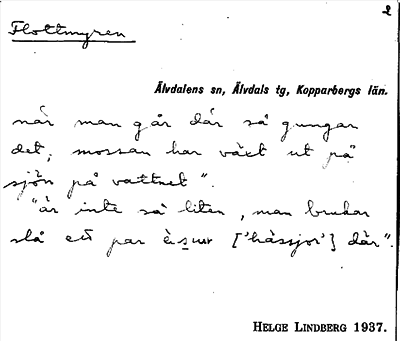 2
Flottmyren
Älvdalens sn, Älvdals tg, Kopparbergs län.
när man går där så gungar
det; mossan har växt ut på
sjön på vattnet".
"är inte så liten, man brukar
slå ett par ['hässjor'] där".
HELGE LINDBERG 1937.